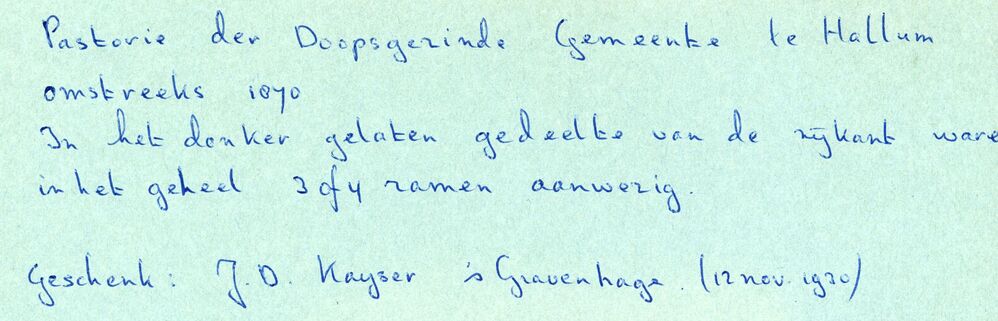 Pastorie der Doopsgezinde Gemeente te Hallum
omstreeks 1870
In het donker gelaten gedeelte van de zijkant ware
in het geheel 3 of 4 ramen aanwezig.
Geschenk: J.D. Kayser 's Gravenhage. (12 nov. 1920)